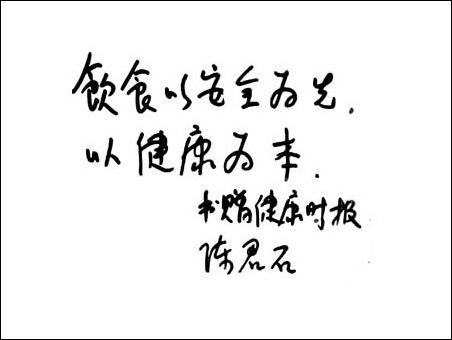 飲食以安全为先.
以健康为本.
书赠健康时报
陈君石